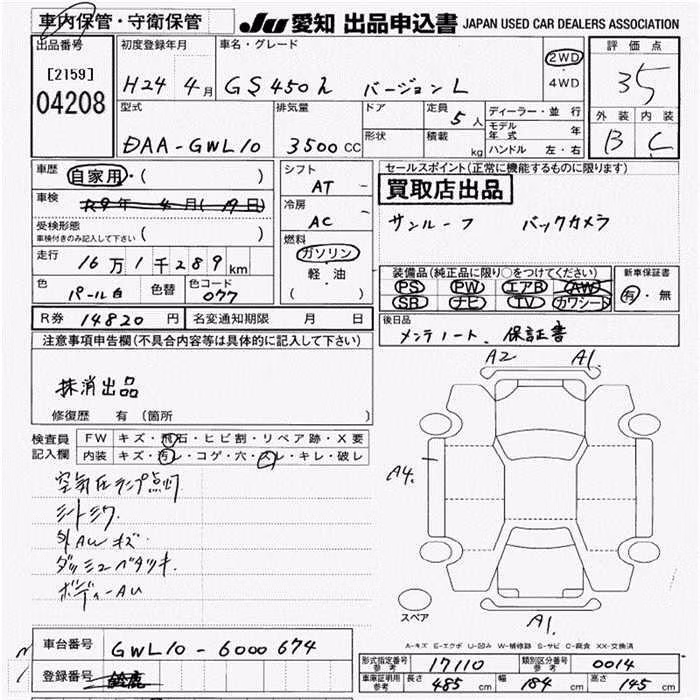 車内保管・守衛保管
JU 愛知 出品申込書 JAPAN USED CAR DEALERS ASSOCIATION
出品番号
[2159]
04208
初度登録年月
H24 4月
車名・グレード
GS450h バージョンL
2WD
・
4WD
評価点
3.5
外装 内装
B C
型式
DAA-GWL10
排気量
3500 CC
ドア
形状
定員 5人
積載 kg
ディーラー・並行
モデル年式 年
ハンドル 左・右
車歴 自家用・( )
車検 R9年 4月(19日)
受検形態
車検付きのみ記入して下さい ( )
走行 16万1千289km
色 パール白 色替 色コード 077
シフト
AT -
冷房
AC -
燃料
ガソリン
軽・油
( )
セールスポイント(正常に機能するものに限ります)
買取店出品
サンルーフ バックカメラ
装備品(純正品に限り○をつけてください)
PS PW エアB AW
SR ナビ TV カワシート
新車保証書
有・無
R券 14820円 名変通知期限 月 日
後日品
メンテノート、保証書
注意事項申告欄(不具合内容等は具体的に記入して下さい)
抹消出品
修復歴 有(箇所 )
検査員
記入欄
FW キズ・飛石・ヒビ割・リペア跡・X要
内装 キズ・汚レ・コゲ・穴・スレ・キレ・破レ
空気圧ランプ点灯
シートシワ
外AWキズ
ダッシュベタツキ
ボディーAU
A2 A1.
A4.
A1.
スペア
A-キズ E-エクボ U-凹み W-補修跡 S-サビ C-腐食 XX-交換済
車台番号 GWL10-6000674
登録番号 鈴鹿
形式指定番号 参考 17110 類別区分番号 参考 0014
車庫証明用 参考 長さ 485cm 幅 184cm 高さ 145cm